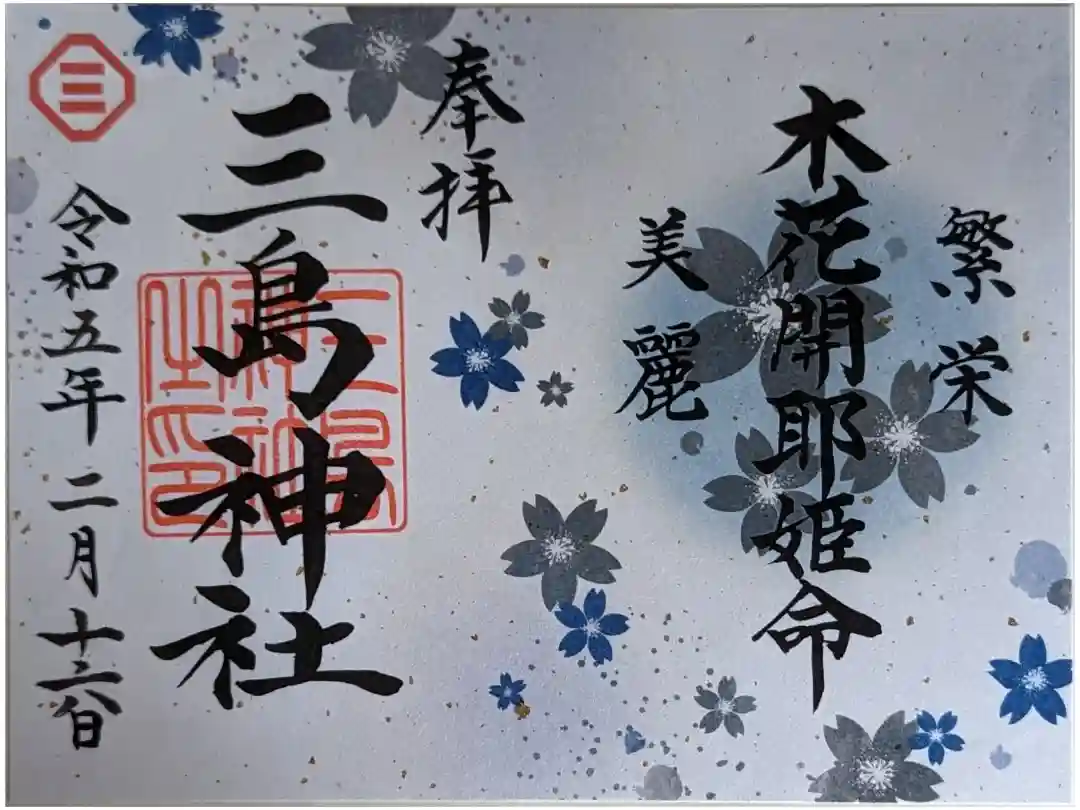 繁栄
木花開耶姫命
美麗
奉拝
三島神社
三島神社之印
三
令和五年二月十六日